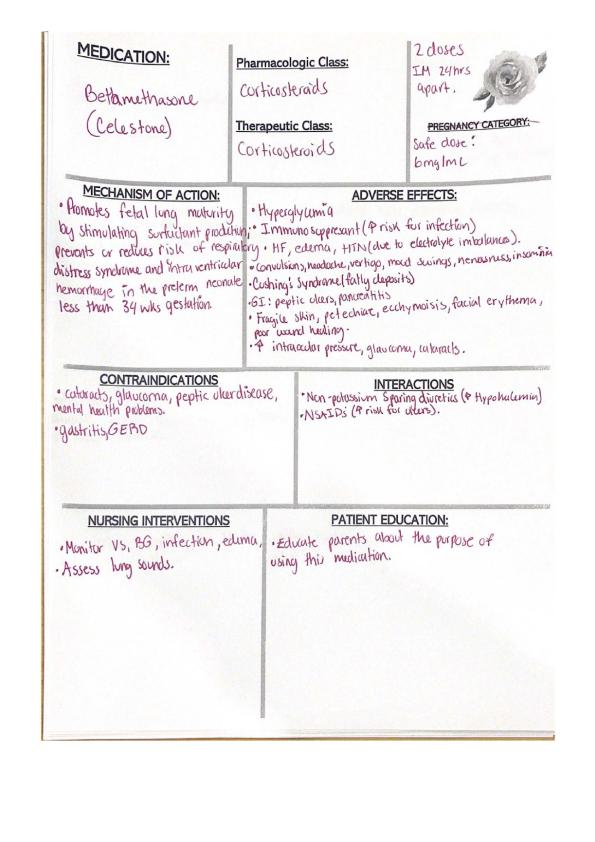 MEDICATION:
Betamethasone
(Celestone)
Pharmacologic Class:
Corticosteroids
Therapeutic Class:
Corticosteroids
2 doses
IM 24hrs
apart.
PREGNANCY CATEGORY:
Safe dose:
6mg/mL
MECHANISM OF ACTION:
• Promotes fetal lung maturity
by stimulating surfactant production;
prevents or reduces risk of respiratory
distress syndrome and intraventricular
hemorrhage in the preterm neonate
less than 34 wks gestation.
ADVERSE EFFECTS:
• Hyperglycemia
• Immunosuppresant (↑ risk for infection)
• HF, edema, HTN (due to electrolyte imbalances).
• Convulsions, headache, vertigo, mood swings, nervousness, insomnia
• Cushing's Syndrome (fatty deposits)
• GI: peptic ulcers, pancreatitis
• Fragile skin, petechiae, ecchymosis, facial erythema,
poor wound healing.
• ↑ intraocular pressure, glaucoma, cataracts.
CONTRAINDICATIONS
• cataracts, glaucoma, peptic ulcer disease,
mental health problems.
• gastritis, GERD
INTERACTIONS
• Non-potassium sparing diuretics (↑ Hypokalemia)
• NSAIDs (↑ risk for ulcers).
NURSING INTERVENTIONS
• Monitor VS, BG, infection, edema,
• Assess lung sounds.
PATIENT EDUCATION:
• Educate parents about the purpose of
using this medication.